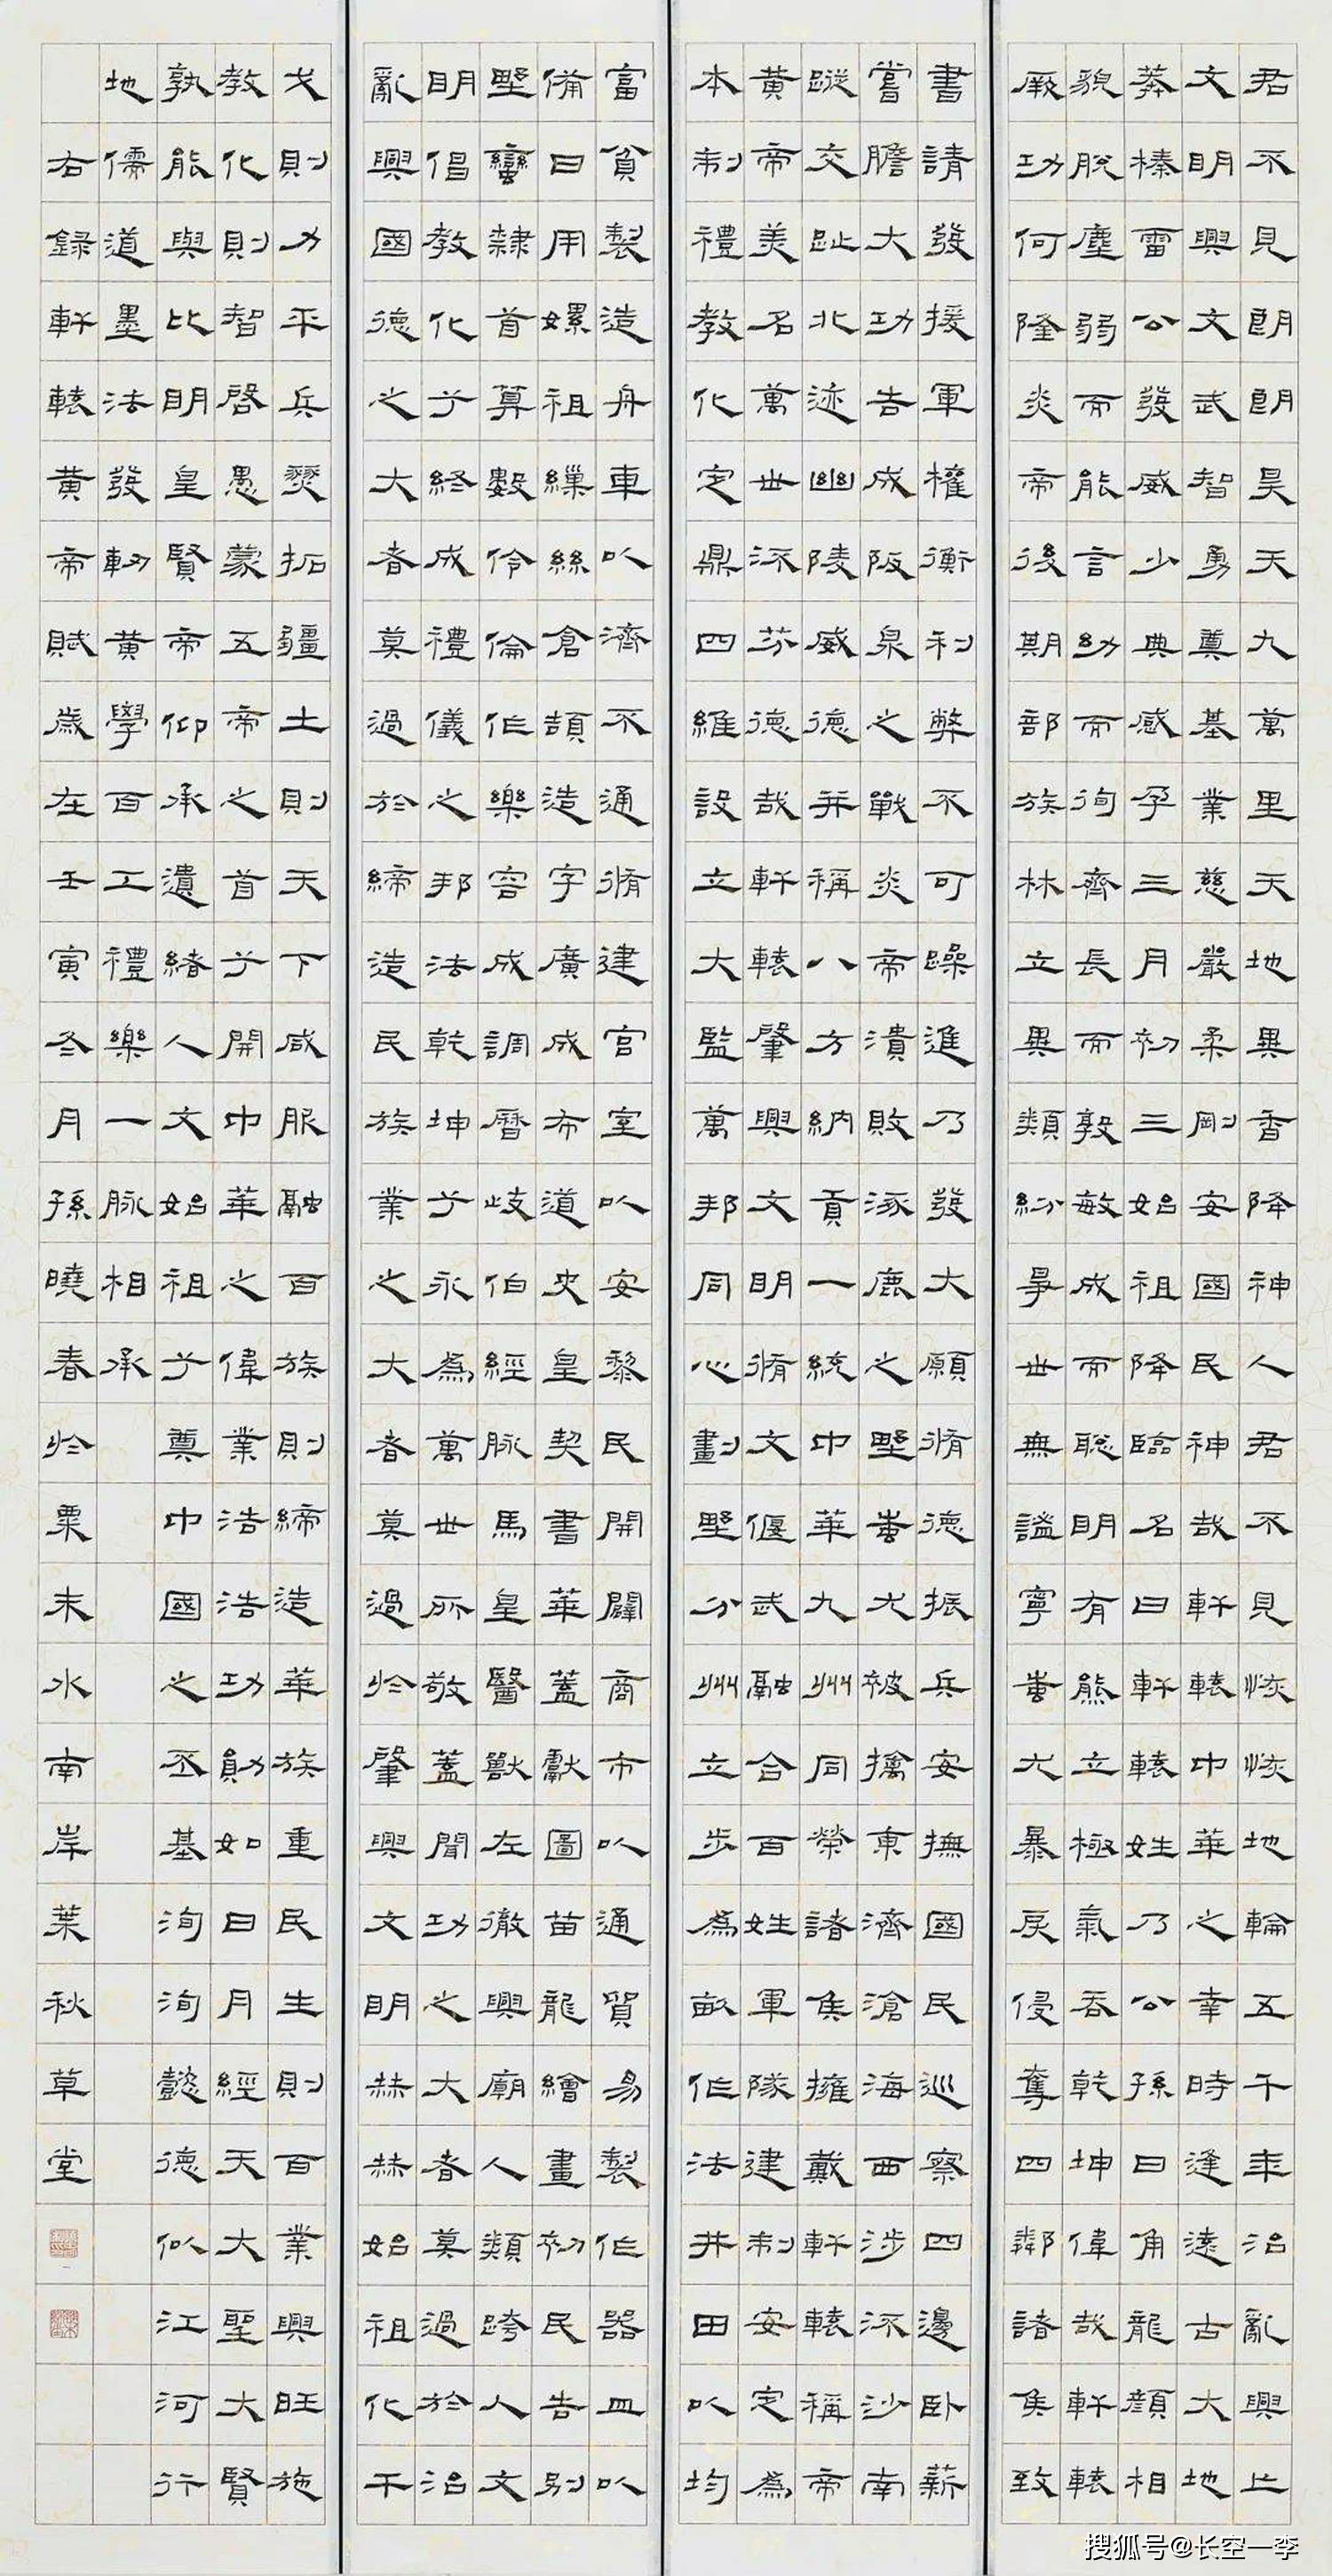 君不見朗朗昊天九萬里天地異香降神人君不見恢恢地輪五千年治亂興亡
文明興文武智勇奠基業慈嚴柔剛安國民神哉軒轅中華之幸時逢遠古大地
莽榛雷公發威少典感孕三月初三始祖降臨名曰軒轅姓乃公孫日角龍顏相
貌脫塵弱而能言幼而徇齊長而敦敏成而聰明有熊立極氣吞乾坤偉哉軒轅
厥功何隆炎帝後期部族林立異類紛爭世無謐寧蚩尤暴戾侵奪四鄰諸侯致
書請發援軍權衡利弊不可躁進乃發大願脩德振兵安撫國民巡察四邊臥薪
嘗膽大功告成阪泉之戰炎帝潰敗涿鹿之野蚩尤被擒東濟滄海西涉流沙南
蹤交趾北迹幽陵威德并稱八方納貢一統中華九州同榮諸侯擁戴軒轅稱帝
黃帝美名萬世流芬德哉軒轅肇興文明脩文偃武融合百姓軍隊建制安定為
本制禮教化定鼎四維設立大監萬邦同心劃野分州立步為畝作法井田以均
富貧製造舟車以濟不通脩建宮室以安黎民開闢商市以通貿易製作器皿以
備日用嫘祖繅絲倉頡造字廣成布道史皇契書華蓋獻圖苗龍繪畫初民告別
野蠻隸首算數伶倫作樂容成調曆歧伯經脉馬皇醫獸左徹興廟人類跨入文
明倡教化兮終成禮儀之邦法乾坤兮永為萬世所敬蓋聞功之大者莫過於治
亂興國德之大者莫過於締造民族業之大者莫過於肇興文明赫赫始祖化干
戈則力平兵燹拓疆土則天下咸服融百族則締造華族重民生則百業興旺施
教化則智啓愚蒙五帝之首兮開中華之偉業浩浩功勛如日月經天大聖大賢
孰能與比明皇賢帝仰承遺緒人文始祖兮奠中國之丕基洵洵懿德似江河行
地儒道墨法發軔黃學百工禮樂一脉相承
右録軒轅黃帝賦歲在壬寅冬月孫曉春於粟末水南岸葉秋草堂
搜狐号@长空一李